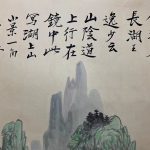 長湖王
逸少云
山陰道
上行在
鏡中此
寫湖上山
小景一